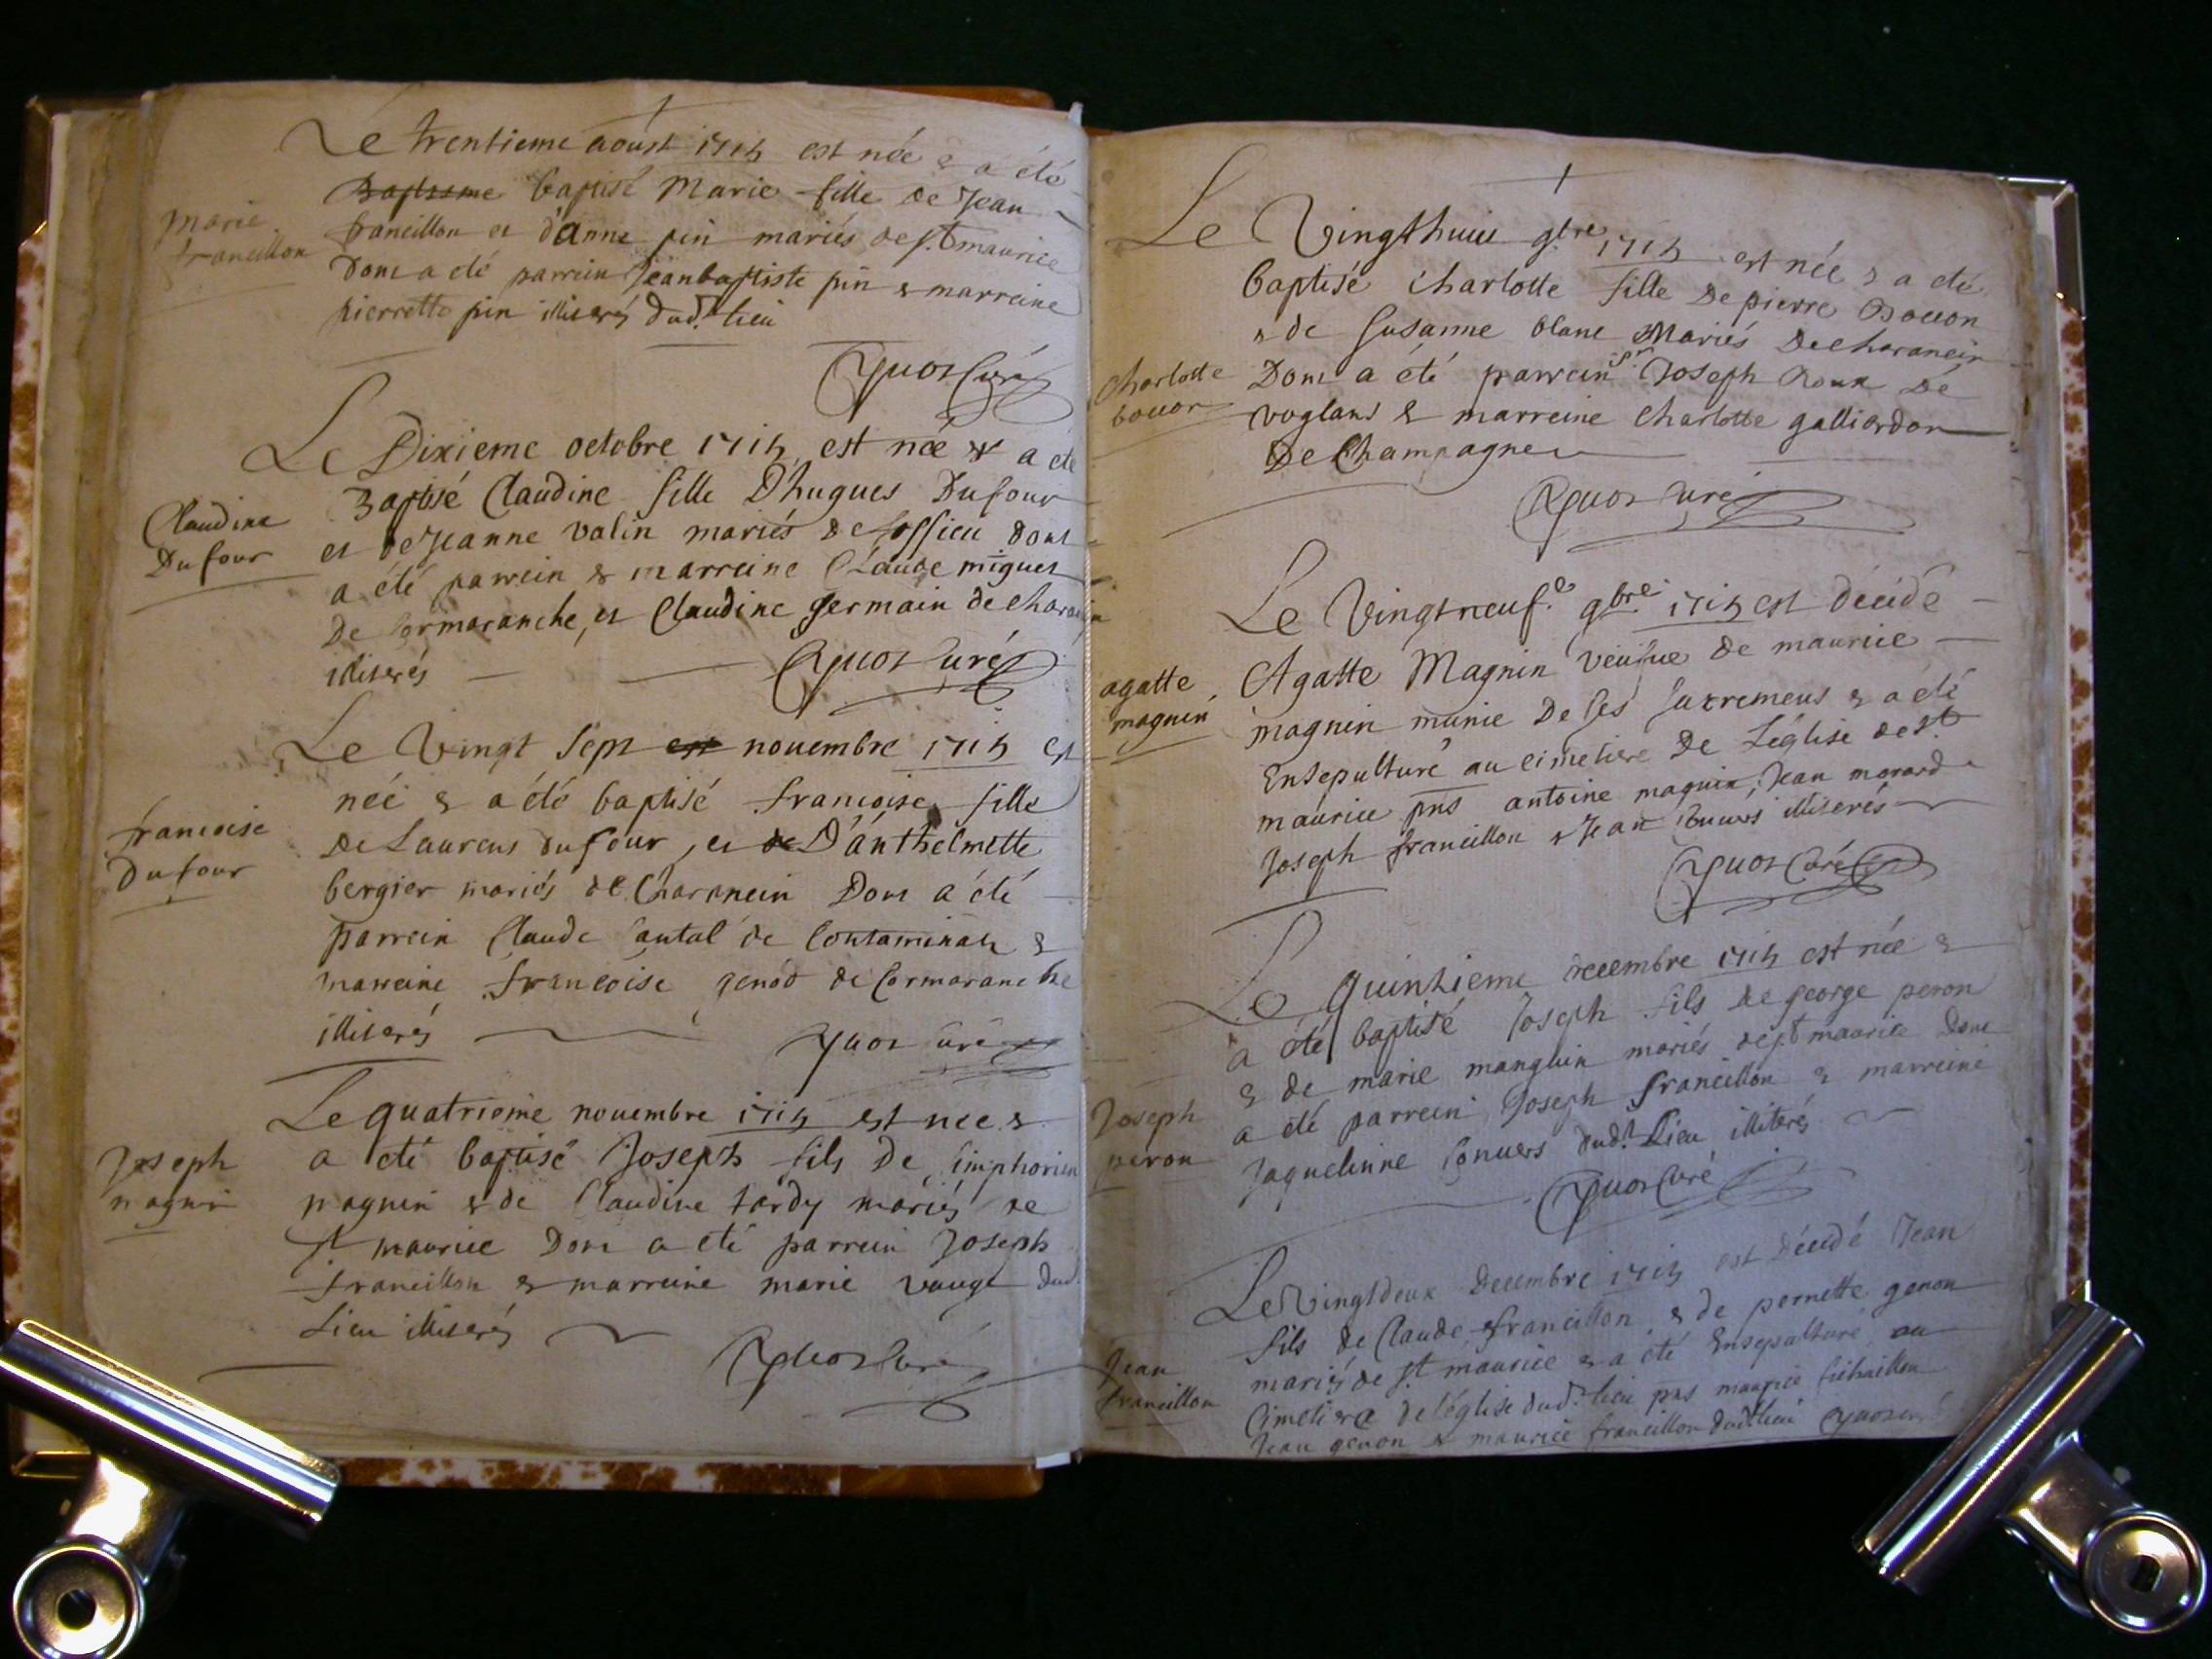 Le trentieme aoust 1715 est née & a été
Baptisme baptisé Marie fille de Jean
marie
francillon
francillon et d'anne pin mariés de st maurice
Dont a été parrein Jeanbaptiste pin & marreine
pierrette pin illiterés dud.t lieu
Curé
Le Dixieme octobre 1715 est née & a été
Baptisé Claudine fille D'hugues Dufour
Claudine
Dufour
et de Jeanne valin mariés de dont
a été parrein & marreine Claude miguet
De Cormaranche, et Claudine germain de
illiterés
Curé
Le Vingt Sept est novembre 1715 est
née & a été baptisé francoise fille
francoise
Dufour
De Laurens dufour, et de D'anthelmette
bergier mariés de Charancin Dont a été
parrein Claude de Contaminaz &
marreine francoise genod de Cormaranche
illiterés
curé
Le quatrieme nouembre 1715 est nee &
a été baptisé Joseph fils De simphorien
Joseph
magnin
magnin & de Claudine tardy mariés de
st maurice Dont a été parrein Joseph
francillon & marreine marie vauge dud.
Lieu illiterés
Curé
Le Vingthuit 9bre 1715 est née & a été
baptisé Charlotte fille De pierre Bouon
& de Susanne blanc Mariés De charancin
Charlotte
bouon
Dont a été parrein sr Joseph Roux De
voglans & marreine Charlotte galliardon
De Champagne
Curé
Le Vingtneuf.e 9bre 1715 est décédé
Agatte Magnin veufue de maurice
agatte
magnin
magnin munie De ses sacremens & a été
Ensepulturé au cimetiere De L'église de st
maurice pns antoine magnin, Jean morard
Joseph francillon & Jean illiterés
Curé
Le quinzieme decembre 1715 est née &
a été baptisé Joseph fils de george peron
& de marie manguin mariés de st maurice Dont
Joseph
peron
a été parrein Joseph francillon & marreine
Jaquelinne Conuers dud.t Lieu illiterés
Curé
Le Vingtdeux Decembre 1715 est Décédé Jean
fils de Claude francillon & de pernette genon
Jean
francillon
mariés de st maurice & a été Ensepulturé au
Cimetiere de l'église dud.t lieu pns maurice
Jean genon & maurice francillon dud.t lieu